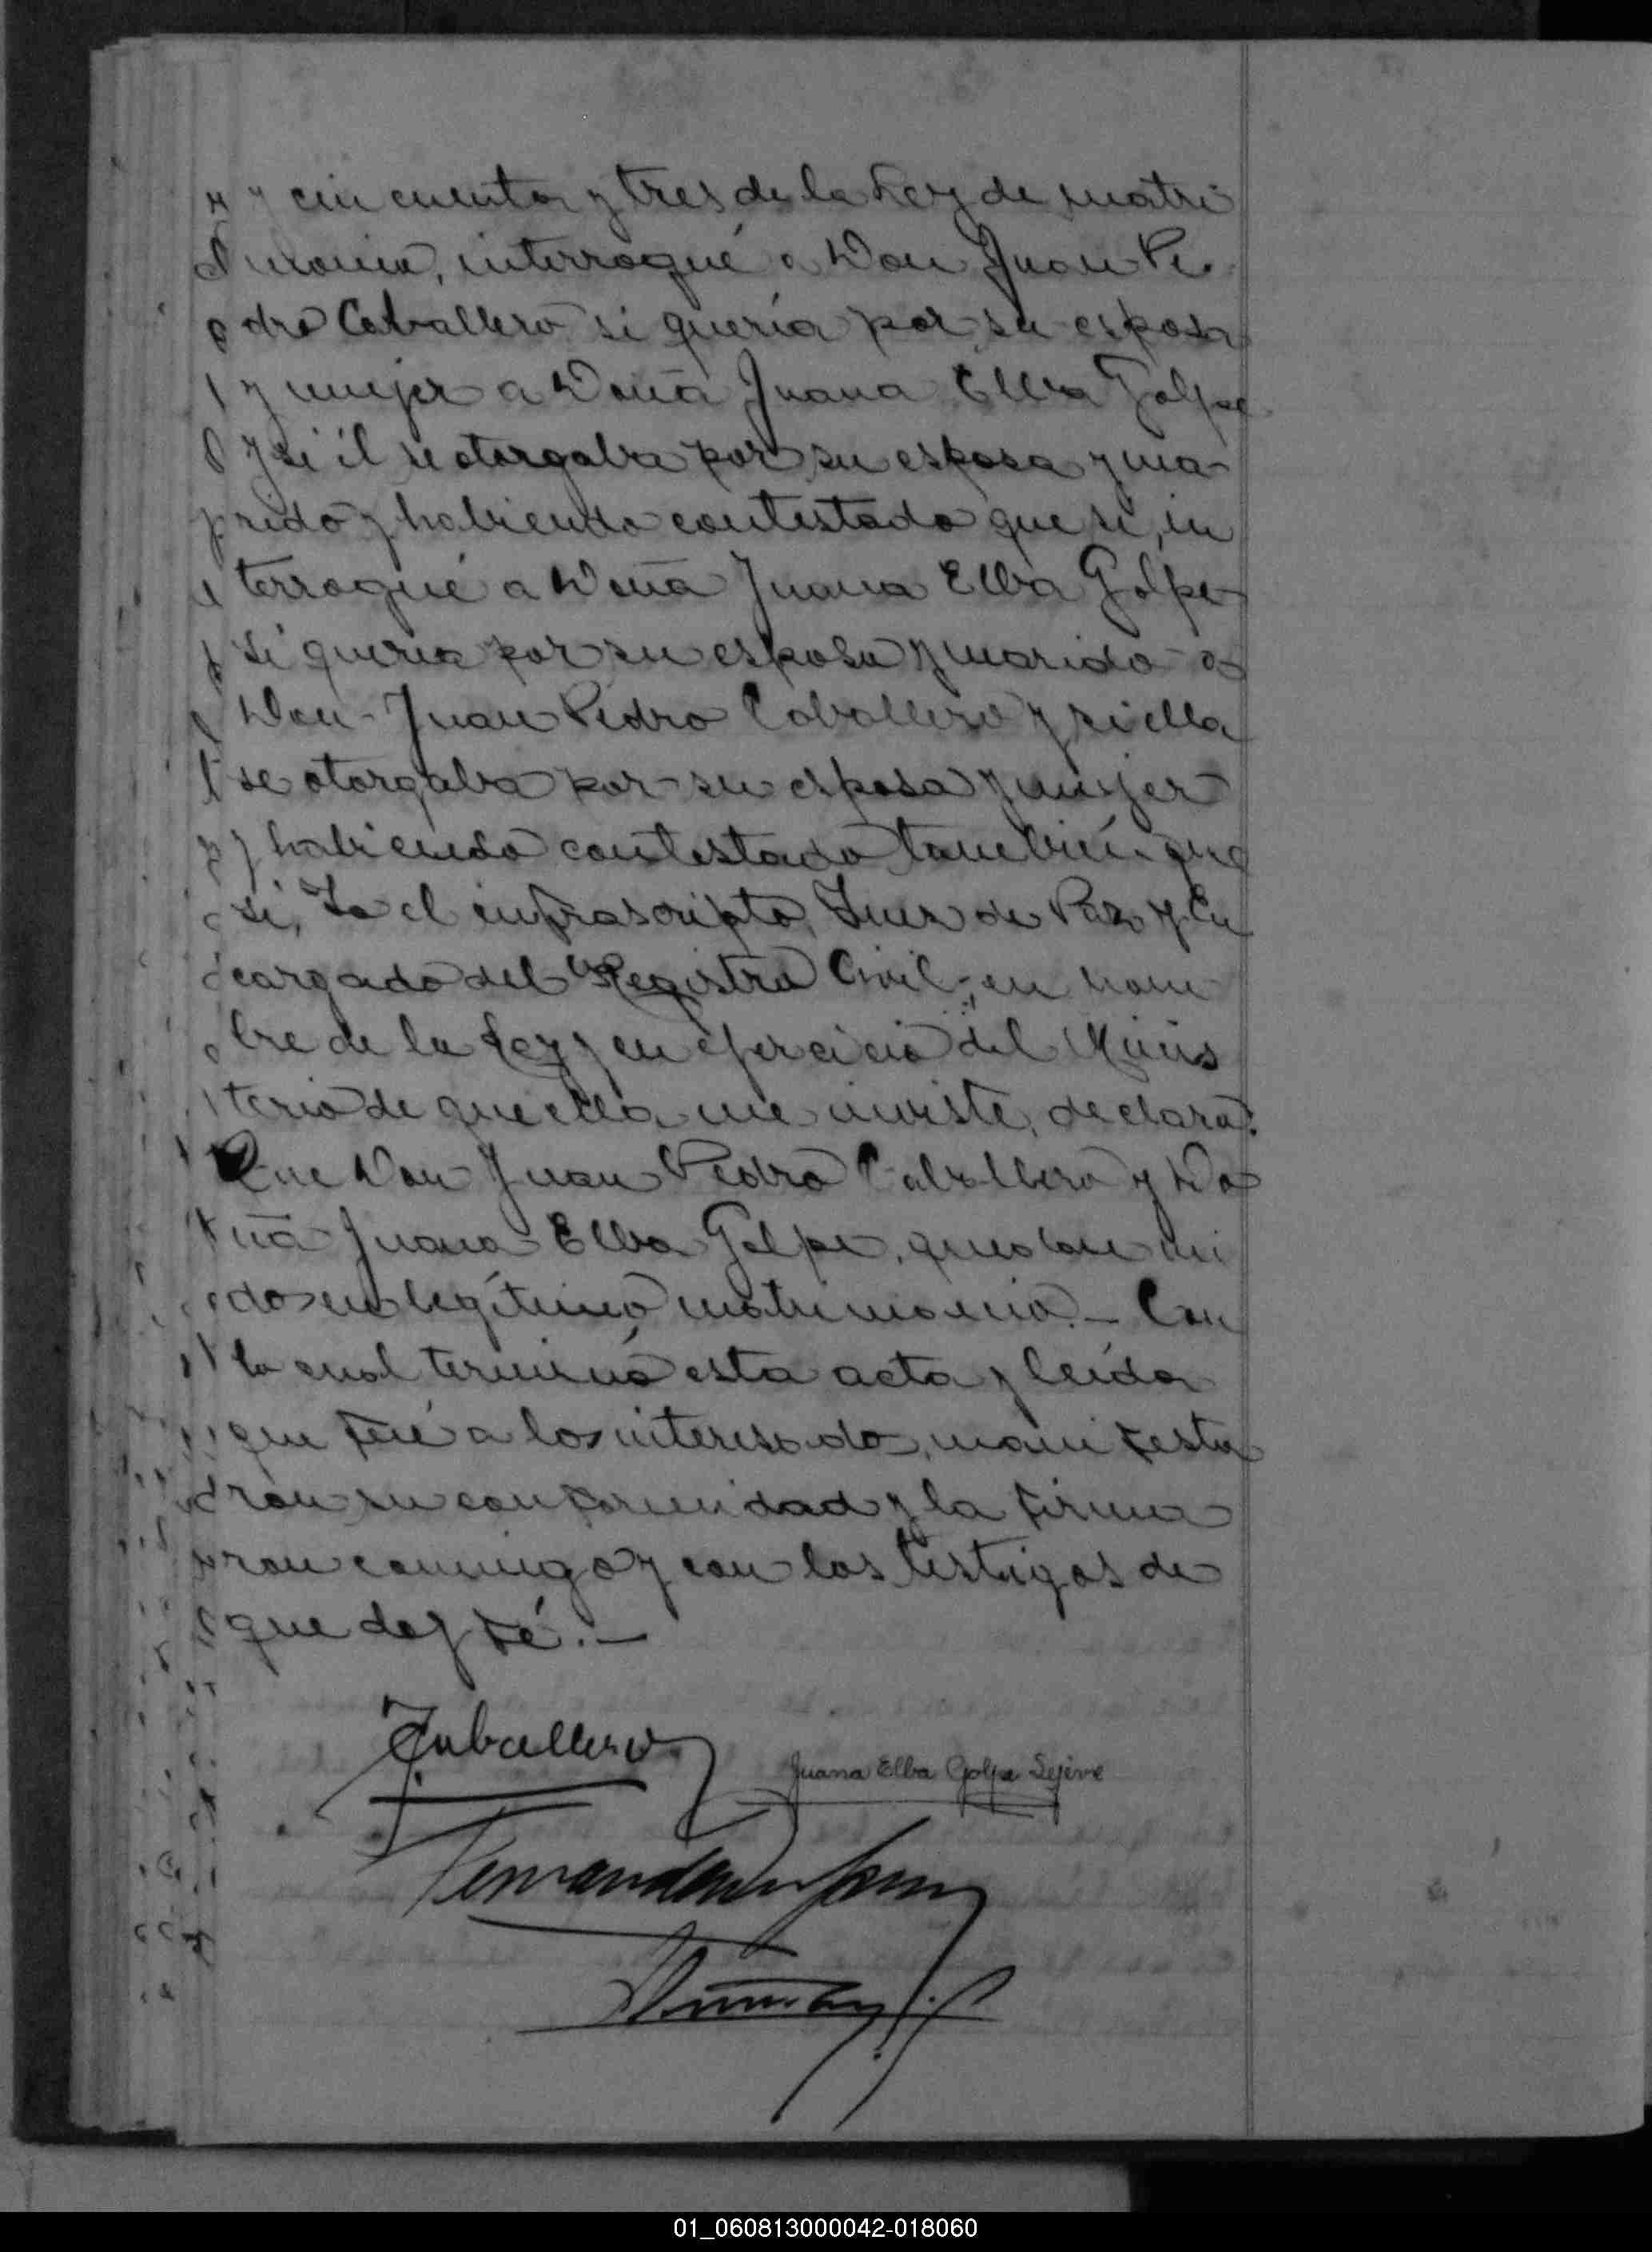 y cincuenta y tres de la Ley de matri
monio, interrogué a Don Juan Pe
dro Caballero si quería por su esposa
y mujer a Doña Juana Elba Golpe
y si él se otorgaba por su esposo y ma
rido y habiendo contestado que si, in
terrogué a Doña Juana Elba Golpe
si quería por su esposo y marido a
Don Juan Pedro Caballero y si ella
se otorgaba por su esposa y mujer
y habiendo contestado también que
si, Yo el infrascripto, Juez de Paz y En
cargado del Registro Civil, en nom
bre de la Ley y en ejercicio del Minis
terio de que ella me inviste, declaro:
Que Don Juan Pedro Caballero y Do
ña Juana Elba Golpe, quedan uni
dos en legítimo matrimonio.— Con
lo cual terminó esta acta y leída
que fué a los interesado, manifesta
ron su conformidad y la firma
ron conmigo y con los testigos de
que doy fé.—
Caballero
Juana Elba Golpe Lejeve
01_060813000042-018060